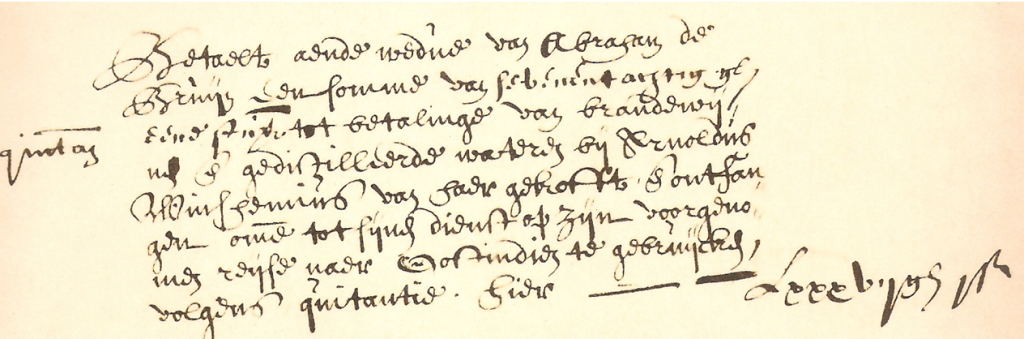 Betaelt aende weduwe van Abraham de
Bruijn een somme van sevenentachtig gl,
eene stuyv tot betalinge van brandewij„
quitan
nen & gedistilleerde wateren bij Arnoldus
Winshemius van haer gekocht & ontfan„
gen omme tot sijnen dienst op zijn voorgeno„
men reijse naer Oostindien te gebruijcken,
volgens quitantie. hier
Lxxxvij gl j st